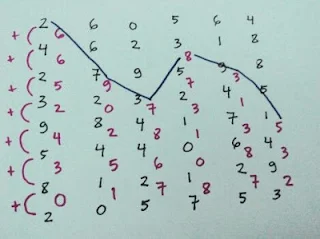 2 6 0 5 6 4
+( 6
4 6 2 3 1 8
+( 6 8
2 7 9 5 9 8
+( 5 9 3
3 2 3 2 4 5
+( 2 0 7 3 1
9 8 4 1 7 1
+( 4 2 8 1 3 5
5 4 4 0 6 4
+( 3 5 6 0 8 3
8 1 2 1 2 9
+( 0 1 7 8 7 2
2 0 5 7 5 3